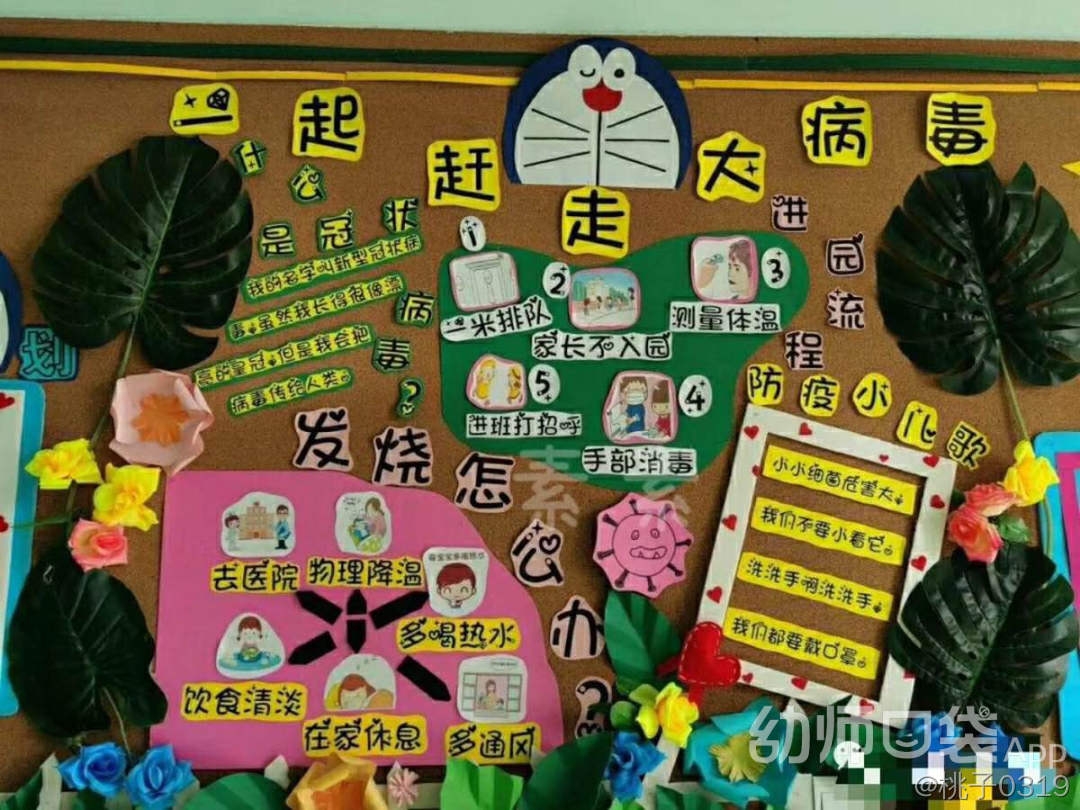 一起赶走大病毒
什么是冠状病毒?
我的名字叫新型冠状病
毒,虽然我长得很像漂
亮的皇冠,但是我会把
病毒传给人类。
进园流程
1
一米排队
2
家长不入园
3
测量体温
4
手部消毒
5
进班打招呼
发烧怎么办?
去医院
物理降温
多喝热水
饮食清淡
在家休息
多通风
防疫小儿歌
小小细菌危害大,
我们不要小看它。
洗洗手啊洗洗手,
我们都要戴口罩。
划
素素
幼师口袋App
@桃子0319